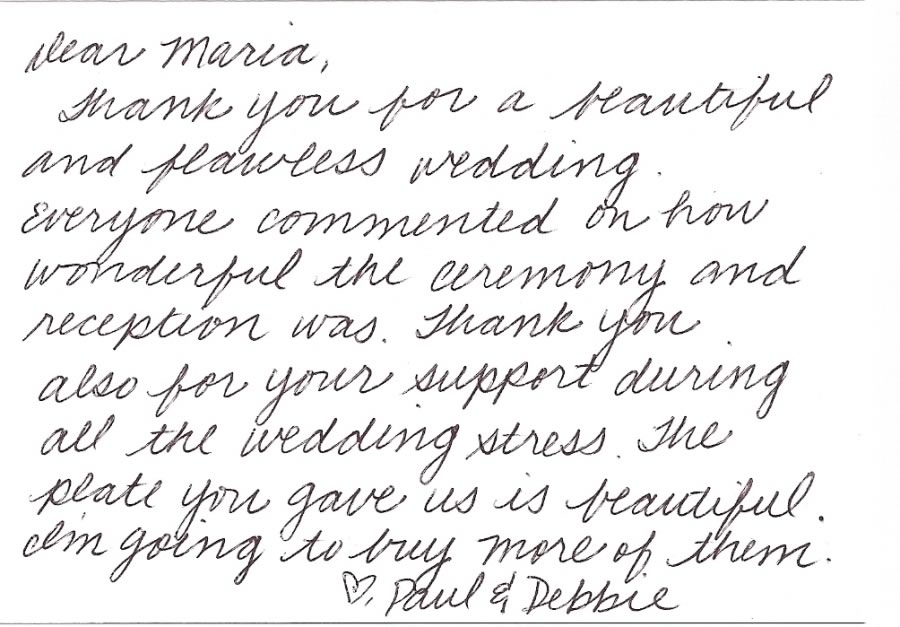 Dear Maria,
Thank you for a beautiful
and flawless wedding.
Everyone commented on how
wonderful the ceremony and
reception was. Thank you
also for your support during
all the wedding stress. The
plate you gave us is beautiful.
I'm going to buy more of them.
♡, Paul & Debbie